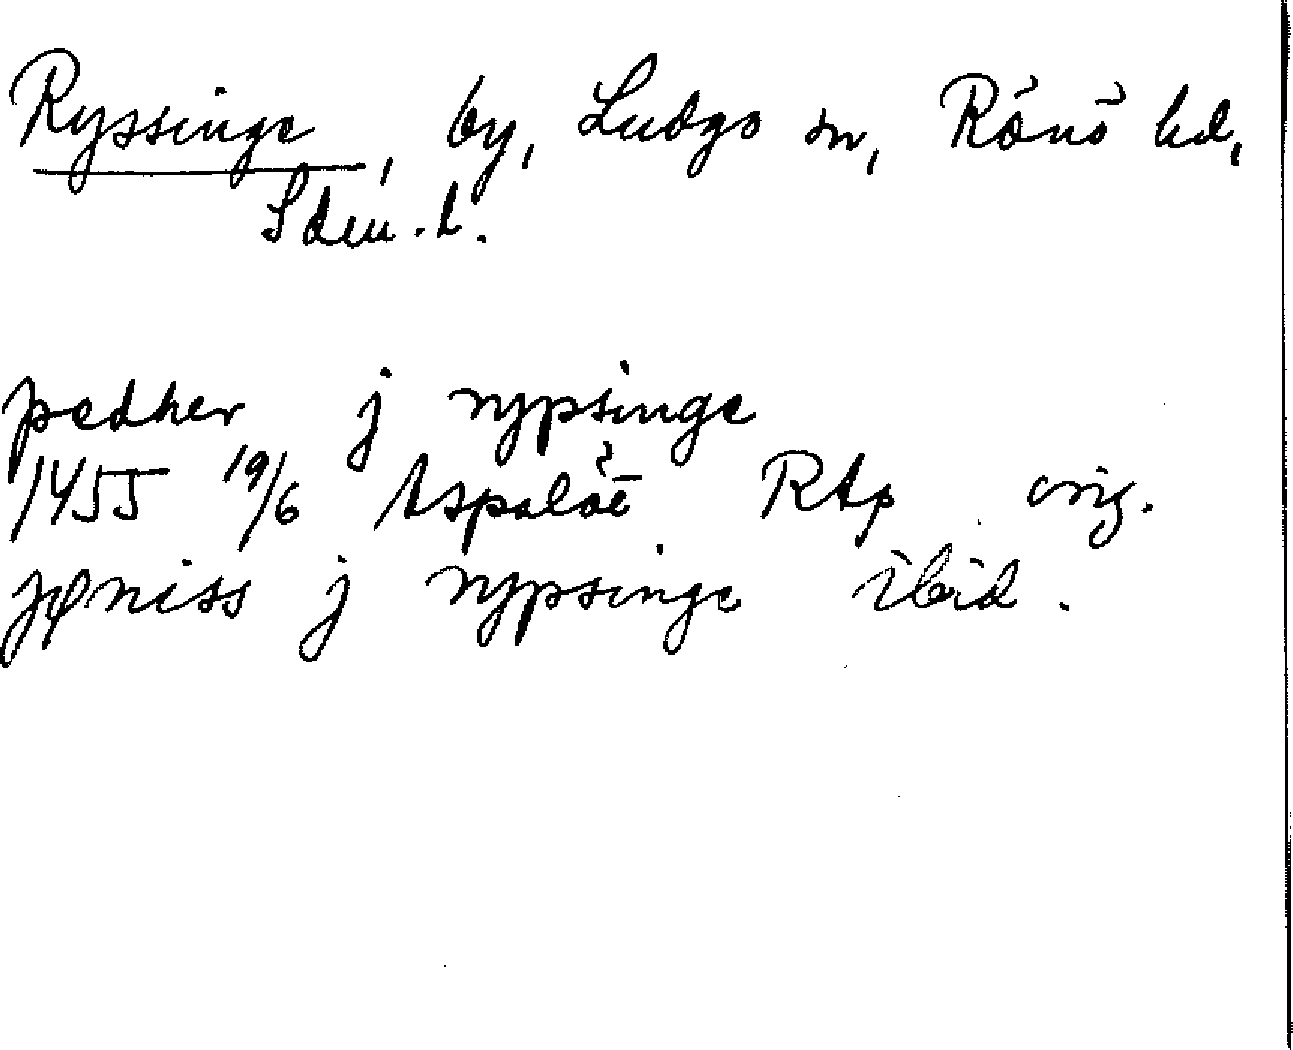 Ryssinge, by, Ludgo sn, Rönö hd,
Sdm.l.
pedher j rypsinge
1455 19/6 Aspaløt RAp orig.
jøniss j rypsinge ibid.